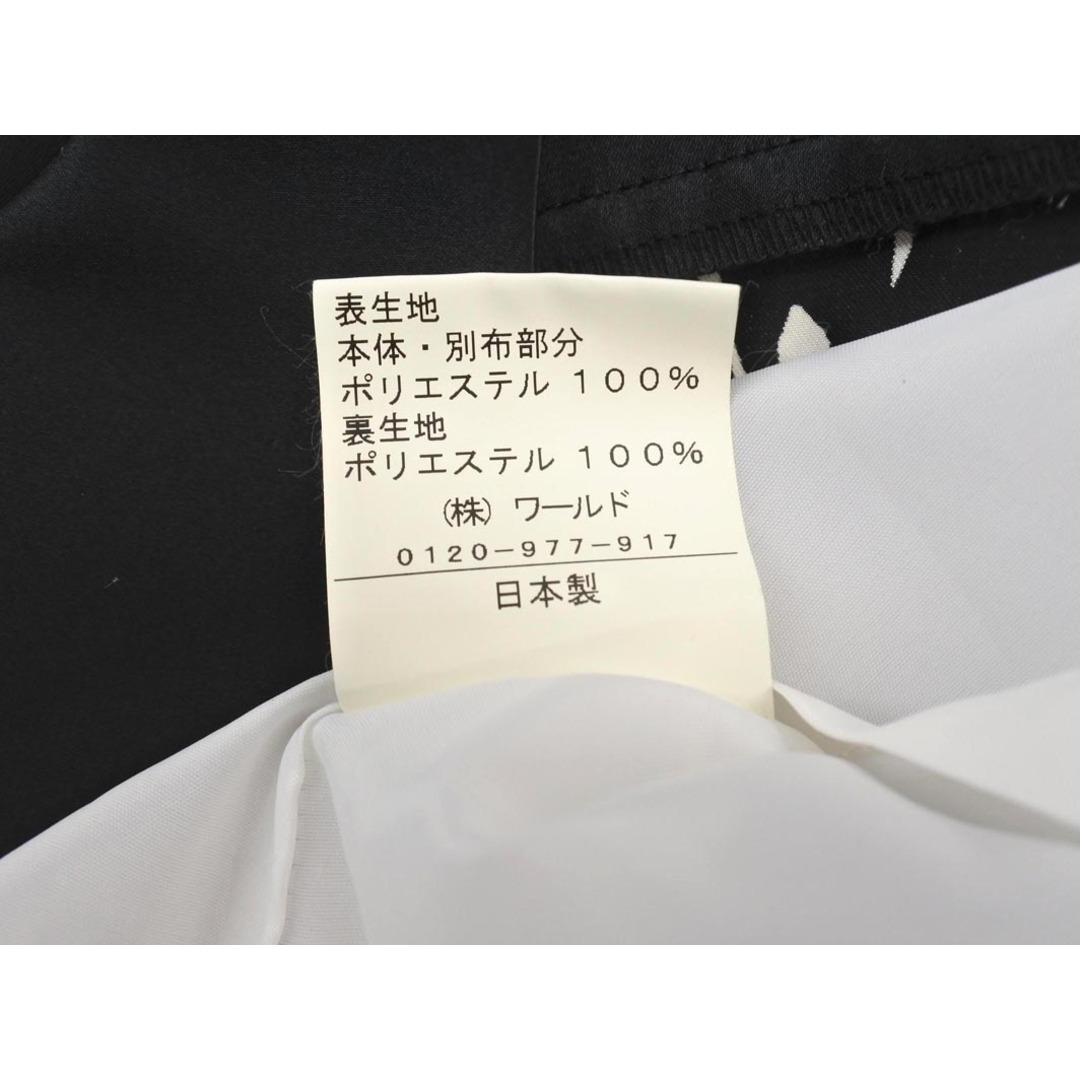 表生地
本体・別布部分
ポリエステル 100%
裏生地
ポリエステル 100%
(株) ワールド
0120-977-917
日本製